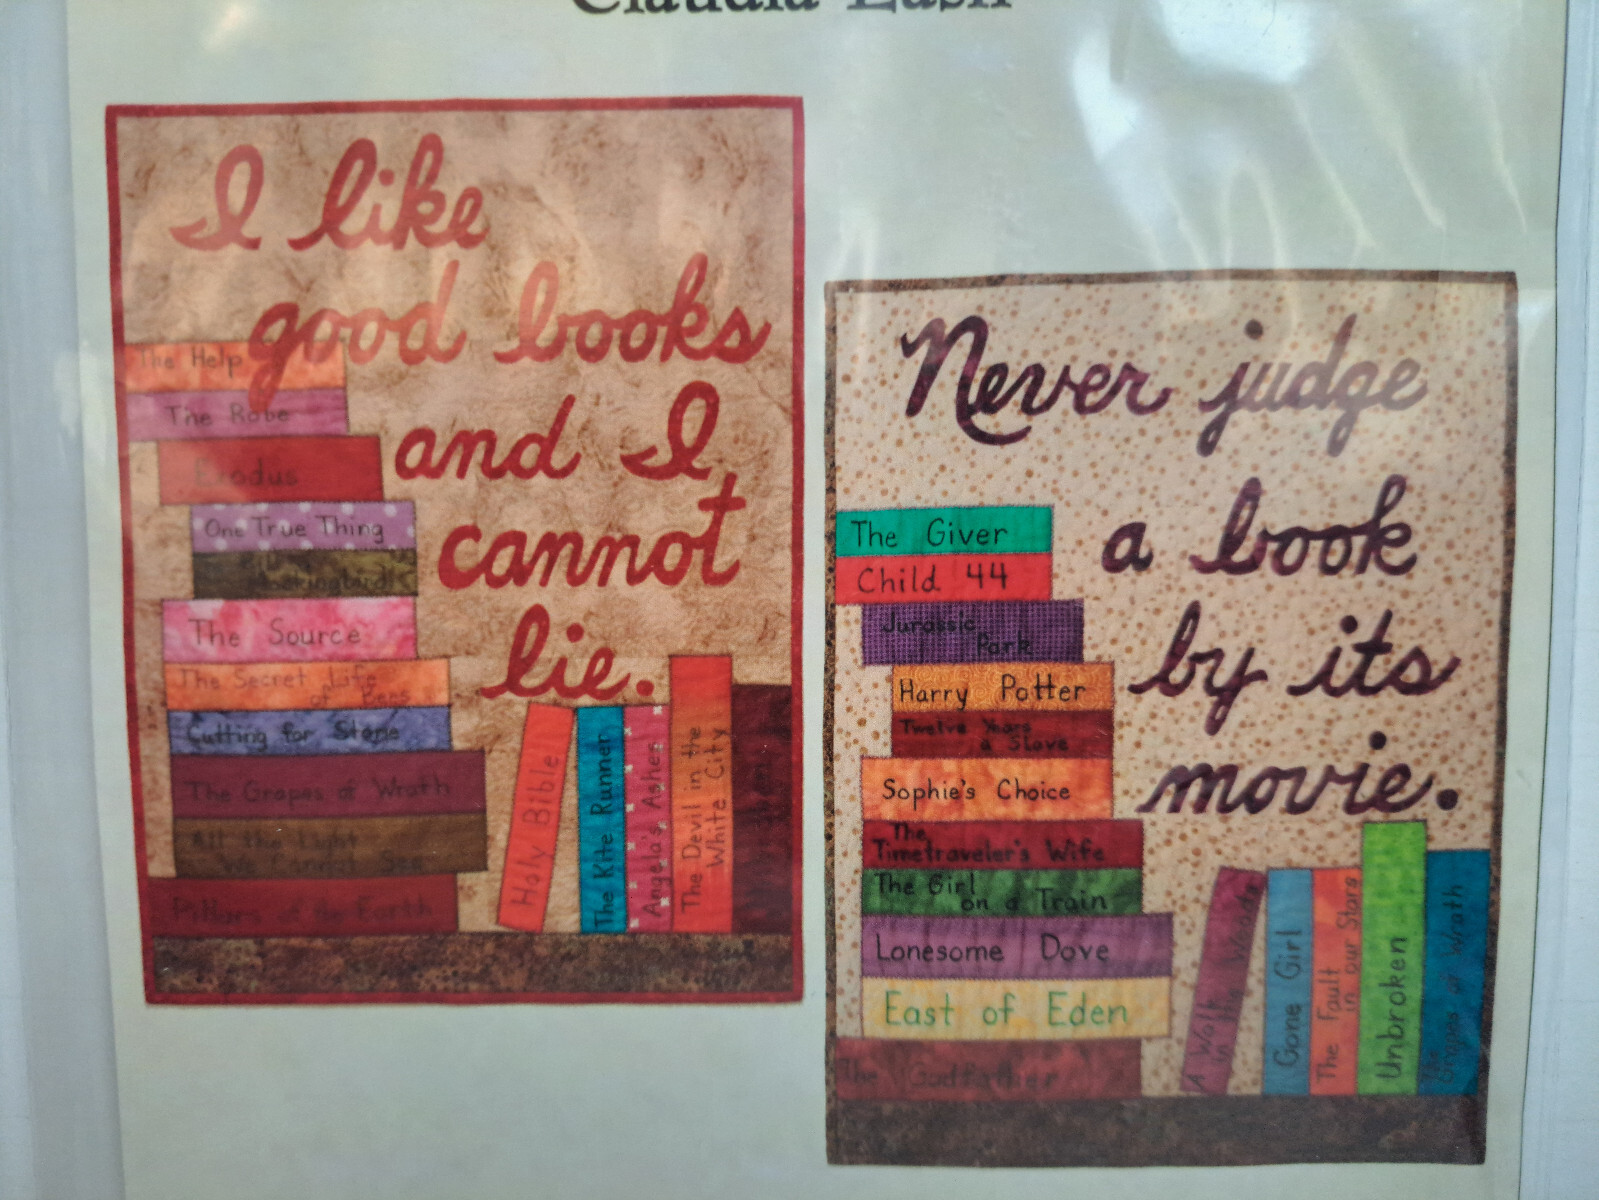 Claudia Lash
I like
good books
and I
cannot
lie.
The Help
The Robe
Exodus
One True Thing
Mockingbird
The Source
The Secret Life
of Bees
Cutting for Stone
The Grapes of Wrath
All the Light
We Cannot See
Pillars of the Earth
Holy Bible
The Kite Runner
Angela's Ashes
The Devil in the
White City
Never judge
a book
by its
movie.
The Giver
Child 44
Jurassic
Park
Harry Potter
Twelve Years
a Slave
Sophie's Choice
The
Timetraveler's Wife
The Girl
on a Train
Lonesome Dove
East of Eden
The Godfather
A Walk
in the Woods
Gone Girl
The Fault
in our Stars
Unbroken
The
Grapes of Wrath